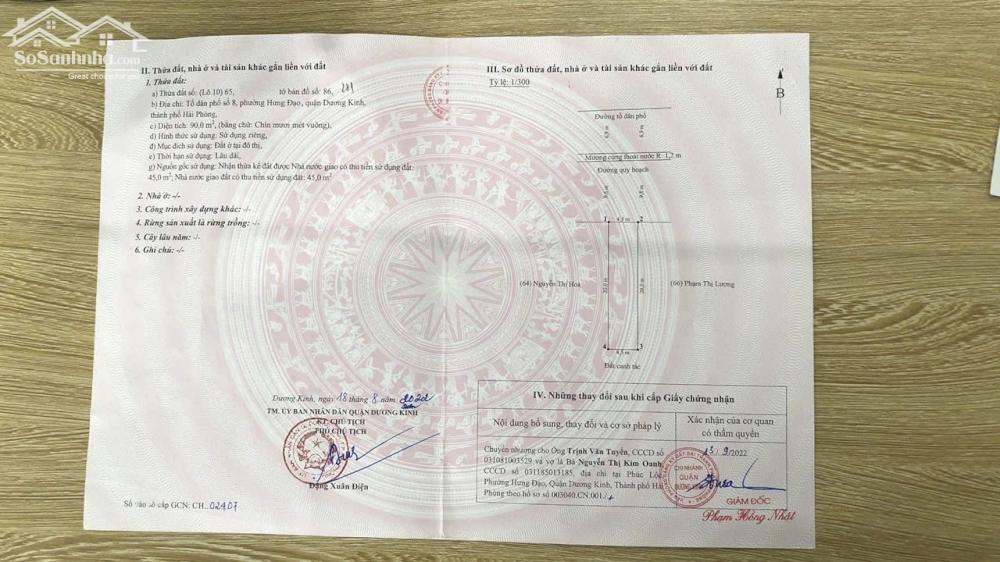 SoSanhnha.com
Great choice for you
II. Thửa đất, nhà ở và tài sản khác gắn liền với đất
1. Thửa đất:
a) Thửa đất số: (Lô 10) 65, tờ bản đồ số: 86,
b) Địa chỉ: Tổ dân phố số 8, phường Hưng Đạo, quận Dương Kinh,
thành phố Hải Phòng,
c) Diện tích: 90,0 m², (bằng chữ: Chín mươi mét vuông),
d) Hình thức sử dụng: Sử dụng riêng,
đ) Mục đích sử dụng: Đất ở tại đô thị,
e) Thời hạn sử dụng: Lâu dài,
g) Nguồn gốc sử dụng: Nhận thừa kế đất được Nhà nước giao có thu tiền sử dụng đất:
45,0 m²; Nhà nước giao đất có thu tiền sử dụng đất: 45,0 m²
2. Nhà ở: -/-
3. Công trình xây dựng khác: -/-
4. Rừng sản xuất là rừng trồng: -/-
5. Cây lâu năm: -/-
6. Ghi chú: -/-
Dương Kinh, ngày 18 tháng 8 năm 2022
TM. ỦY BAN NHÂN DÂN QUẬN DƯƠNG KINH
KT. CHỦ TỊCH
PHÓ CHỦ TỊCH
Đặng Xuân Điện
Số vào sổ cấp GCN: CH 02407
III. Sơ đồ thửa đất, nhà ở và tài sản khác gắn liền với đất
Tỷ lệ: 1/300
B
Đường tổ dân phố
Mương cống thoát nước R: 1,2 m
Đường quy hoạch
1 4,5 m 2
(64) Nguyễn Thị Hoa
20,0 m
20,0 m
(66) Phạm Thị Lương
4 4,5 m 3
Đất canh tác
IV. Những thay đổi sau khi cấp Giấy chứng nhận
Nội dung bổ sung, thay đổi và cơ sở pháp lý
Xác nhận của cơ quan
có thẩm quyền
Chuyển nhượng cho Ông Trịnh Văn Tuyển, CCCD số
031081003529 và vợ là Bà Nguyễn Thị Kim Oanh,
CCCD số 031185013185, địa chỉ tại Phúc Lộc,
Phường Hưng Đạo, Quận Dương Kinh, Thành phố Hải
Phòng theo hồ sơ số 003040.CN.001./.
/9/2022
CHI NHÁNH
QUẬN
DƯƠNG KINH
GIÁM ĐỐC
Phạm Hồng Nhật